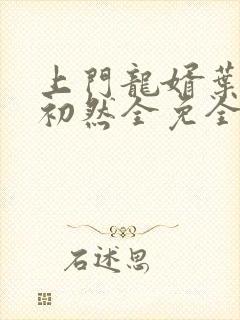 上門龍婿葉
初然全免全
石述思